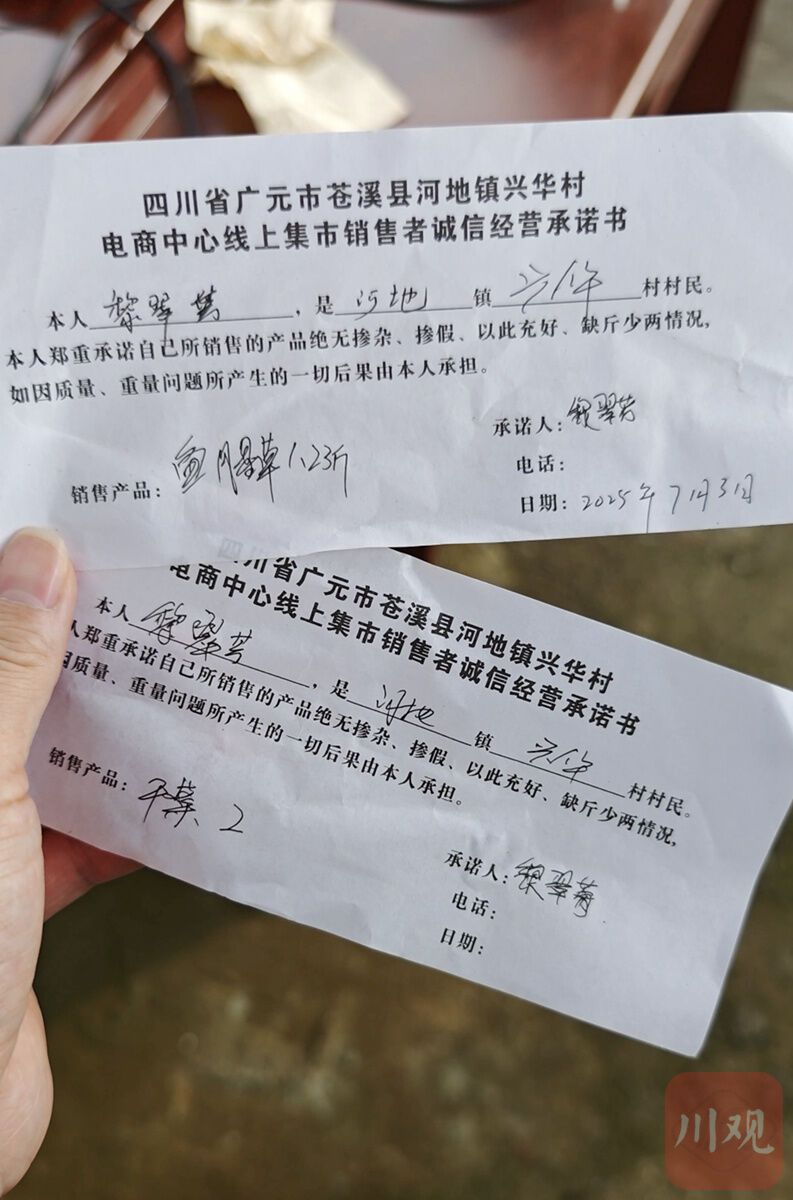 四川省广元市苍溪县河地镇兴华村
电商中心线上集市销售者诚信经营承诺书
本人黎翠芳，是河地镇兴华村村民。
本人郑重承诺自己所销售的产品绝无掺杂、掺假、以此充好、缺斤少两情况，
如因质量、重量问题所产生的一切后果由本人承担。
承诺人：黎翠芳
电话：
销售产品：鱼腥草1.23斤
日期：2025年7月31日
四川省广元市苍溪县河地镇兴华村
电商中心线上集市销售者诚信经营承诺书
本人黎翠芳，是河地镇兴华村村民。
人郑重承诺自己所销售的产品绝无掺杂、掺假、以此充好、缺斤少两情况，
因质量、重量问题所产生的一切后果由本人承担。
销售产品：干菜 2
承诺人：黎翠芳
电话：
日期：
川观